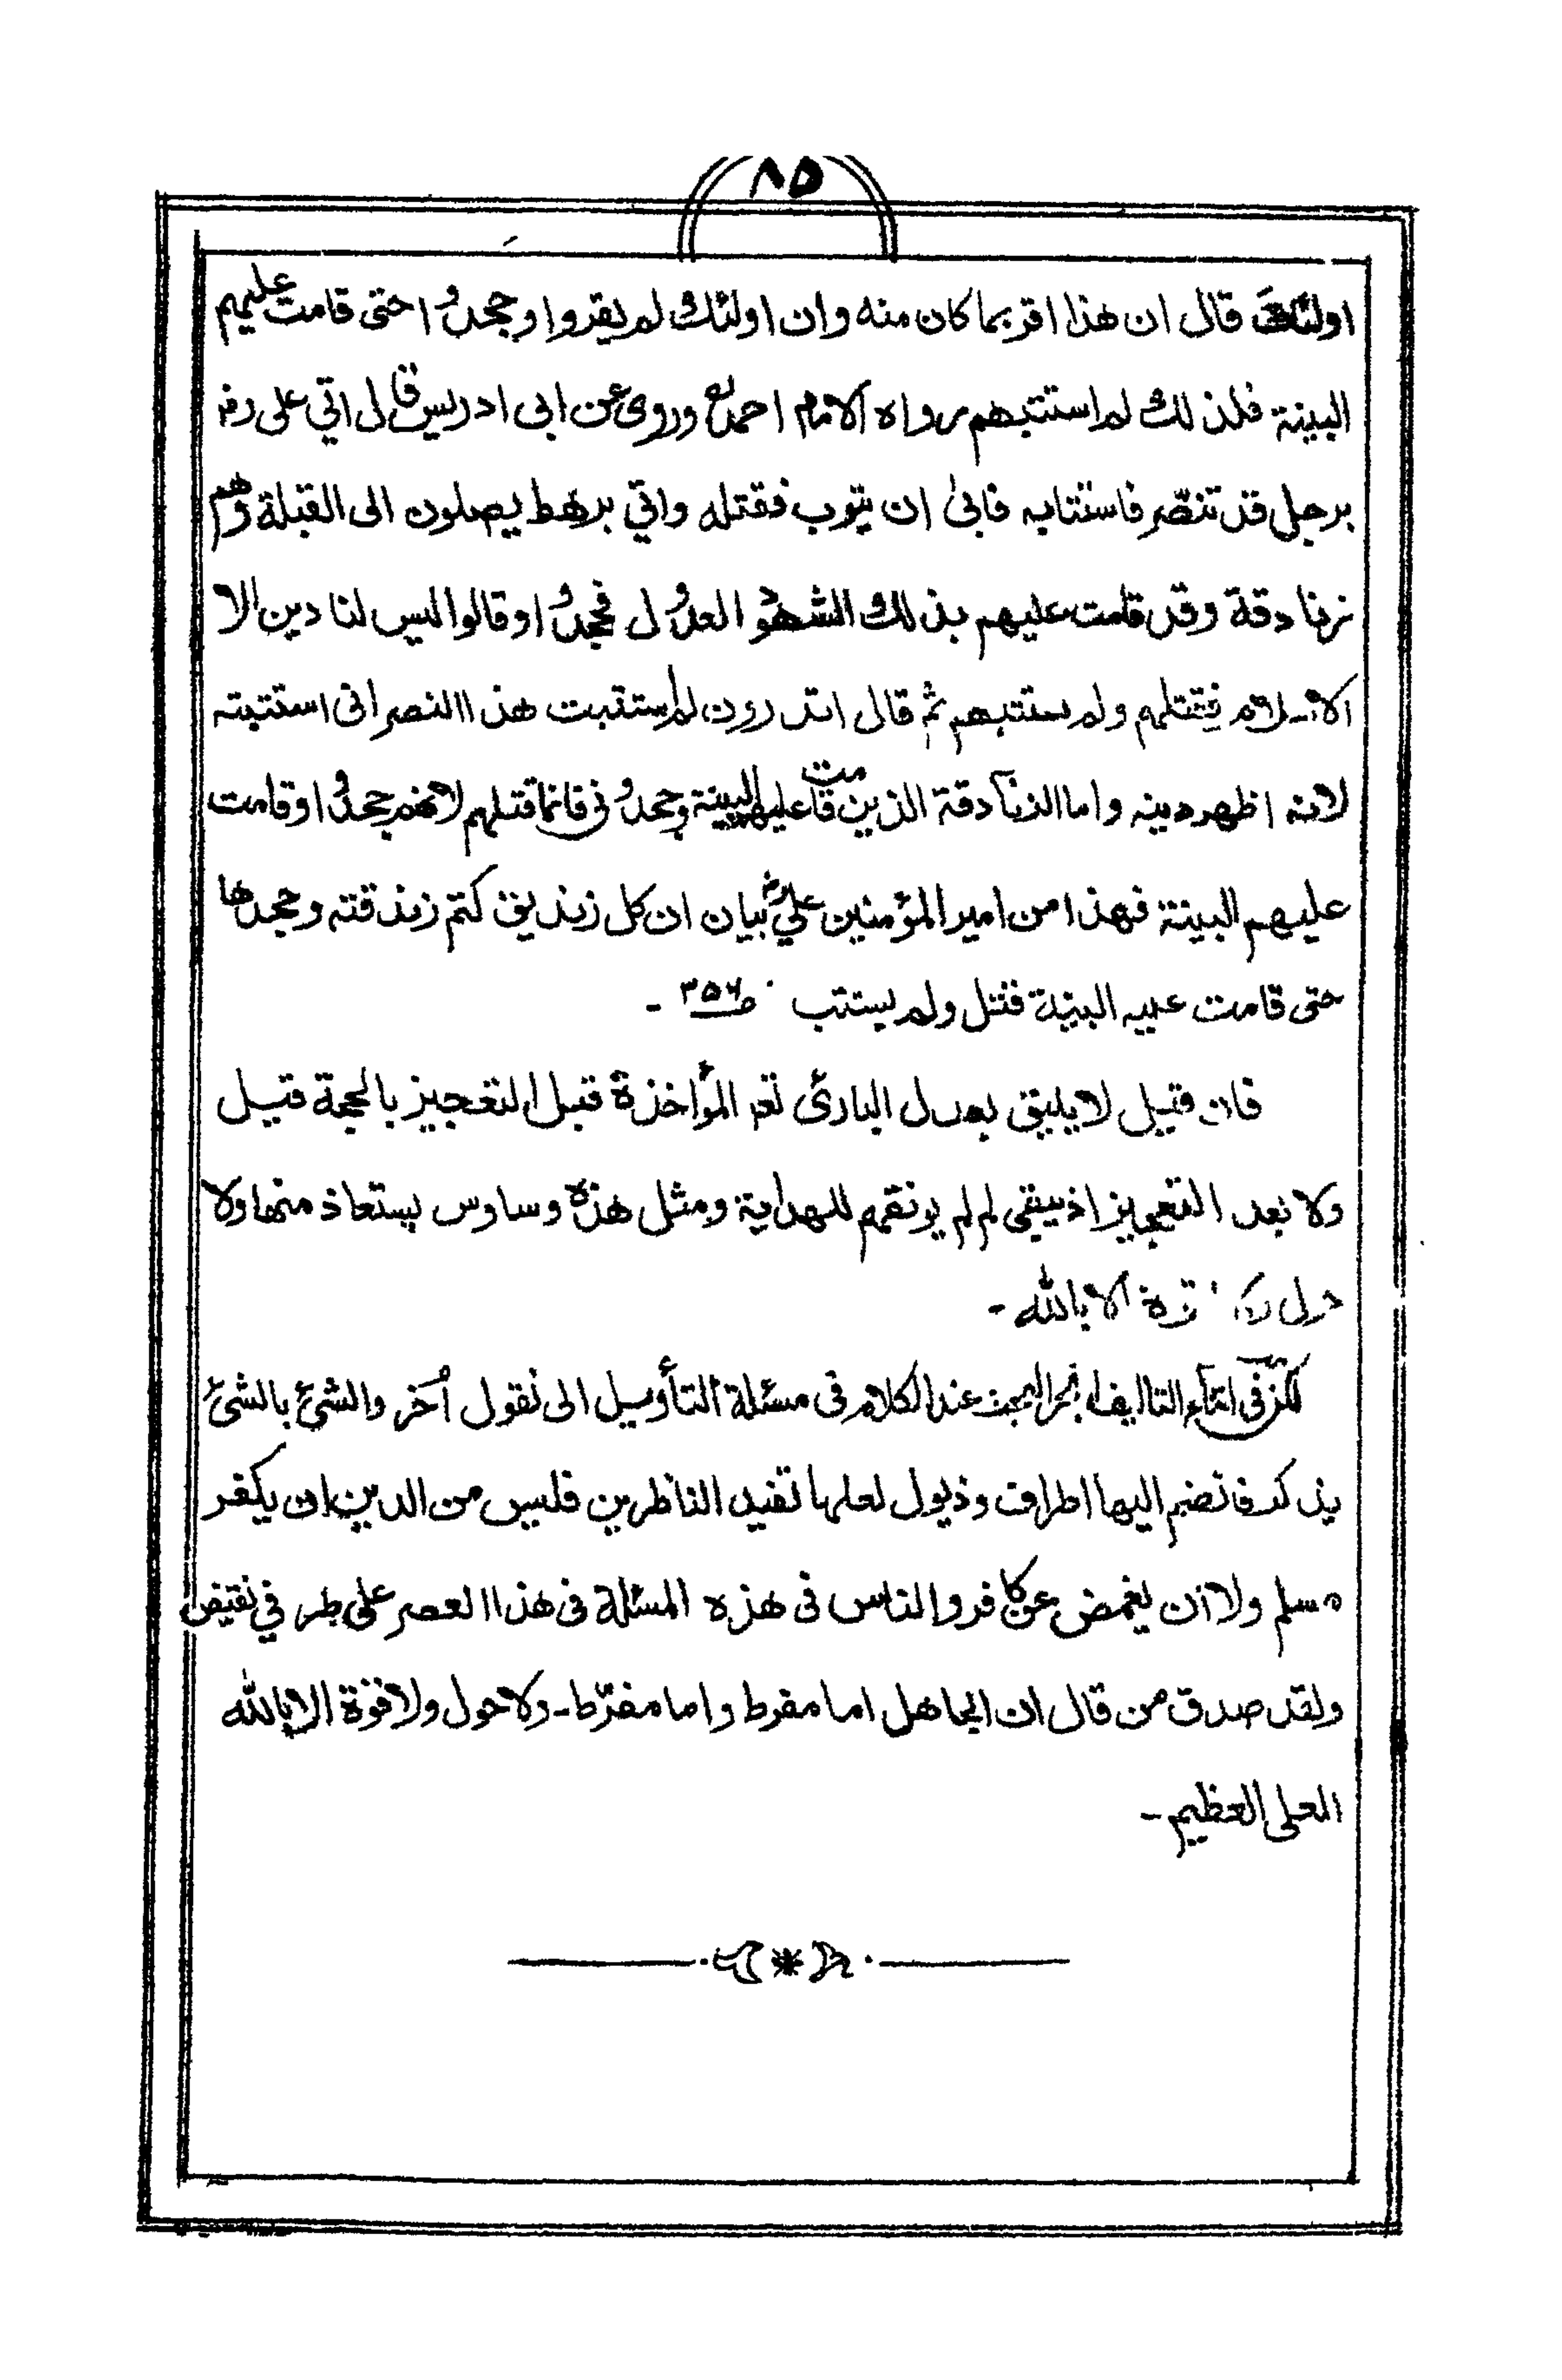 ٨٥
اولئك قال ان هذا اقر بما كان منه وان اولئك لم يقروا وجحدوا حتى قامت عليهم
البينة فلذلك لم استتبهم رواه الامام احمد وروى عن ابى ادريس قال اتي على رضـ
برجل قد تنصّر فاستتابه فابىٰ ان يتوب فقتله واتي برهط يصلون الى القبلة وهم
زنادقة وقد قامت عليهم بذلك الشهود العدول فجحدوا وقالوا ليس لنا دين الا
الاسلام فقتلهم ولم يستتبهم ثم قال اتدرون لم استتبت هذا النصرانى استتبته
لانه اظهر دينه واما الزنادقة الذين قامت عليهم البينة وجحدونى فانما قتلهم لانهم جحدوا وقامت
عليهم البينة فهذا من امير المؤمنين عليؓ بيان ان كل زنديق كتم زندقته وجحدها
حتى قامت عليه البينة قتل ولم يستتب صـ٣٥٦ -
فان قيل لا يليق بعدل البارئ تعم المؤاخذة قبل التعجيز بالحجة قيل
ولا بعد التعجيز اذ يبقى لم لم يوفقهم للهداية ومثل هذه وساوس يستعاذ منها ولا
حول ولا قوة الا بالله -
لكن فى اثناء التاليف انجر البحث عند الكلام فى مسئلة التأويل الى نقول اُخر والشئ بالشئ
يذكر فانضم اليها اطراف وذيول لعلها تفيد الناظرين فليس من الدين ان يكفر
مسلم ولا ان يغمض عن كافر والناس فى هذه المسئلة فى هذا العصر على طرفي نقيض
ولقد صدق من قال ان الجاهل اما مفرط واما مفرّط - ولا حول ولا قوة الا بالله
العلى العظيم -